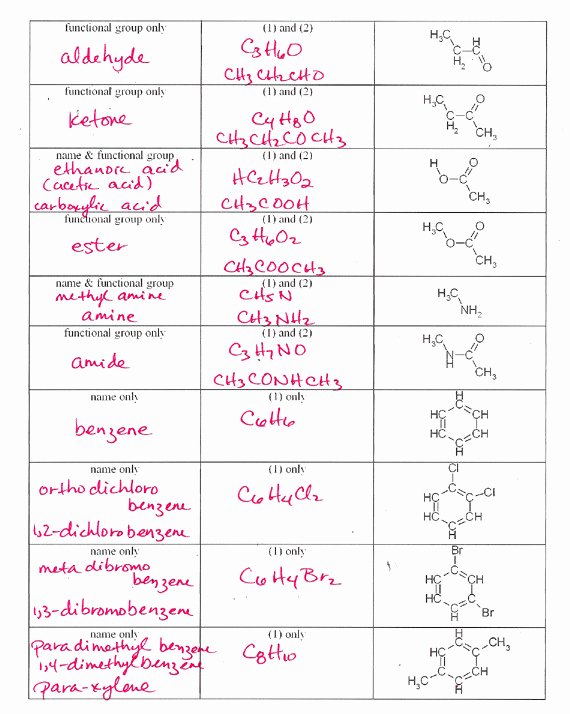 functional group only
aldehyde
(1) and (2)
C3H6O
CH3CH2CHO
H3C
C
H2
H
C
O
functional group only
ketone
(1) and (2)
C4H8O
CH3CH2COCH3
H3C
O
C
C
H2
CH3
name & functional group
ethanoic acid
(acetic acid)
carboxylic acid
(1) and (2)
HC2H3O2
CH3COOH
H
O
O
C
CH3
functional group only
ester
(1) and (2)
C3H6O2
CH3COOCH3
H3C
O
O
C
CH3
name & functional group
methyl amine
amine
(1) and (2)
CH5N
CH3NH2
H3C
NH2
functional group only
amide
(1) and (2)
C3H7NO
CH3CONHCH3
H3C
O
N
H
C
CH3
name only
benzene
(1) only
C6H6
H
C
HC
CH
HC
CH
C
H
name only
ortho dichloro
benzene
1,2-dichlorobenzene
(1) only
C6H4Cl2
Cl
C
HC
C
Cl
HC
CH
C
H
name only
meta dibromo
benzene
1,3-dibromobenzene
(1) only
C6H4Br2
Br
C
HC
CH
HC
C
C
H
Br
name only
para dimethyl benzene
1,4-dimethylbenzene
para-xylene
(1) only
C8H10
H
C
HC
C
CH3
C
CH
H3C
C
H